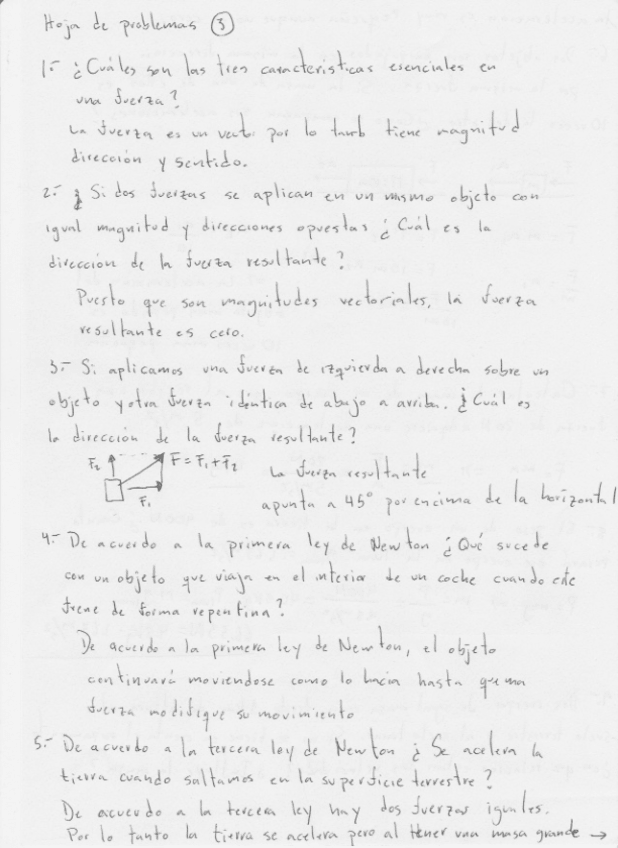 Hoja de problemas 3
1.- ¿Cuáles son las tres características esenciales en
una fuerza?
La fuerza es un vector por lo tanto tiene magnitud
dirección y sentido.
2.- ¿ Si dos fuerzas se aplican en un mismo objeto con
igual magnitud y direcciones opuestas ¿Cuál es la
dirección de la fuerza resultante?
Puesto que son magnitudes vectoriales, la fuerza
resultante es cero.
3.- Si aplicamos una fuerza de izquierda a derecha sobre un
objeto y otra fuerza idéntica de abajo a arriba. ¿Cuál es
la dirección de la fuerza resultante?
F2 F = F1 + F2
F1
La fuerza resultante
apunta a 45° por encima de la horizontal
4.- De acuerdo a la primera ley de Newton ¿Qué sucede
con un objeto que viaja en el interior de un coche cuando este
frene de forma repentina?
De acuerdo a la primera ley de Newton, el objeto
continuará moviendose como lo hacía hasta que una
fuerza modifique su movimiento
5.- De acuerdo a la tercera ley de Newton ¿ Se acelera la
tierra cuando saltamos en la superficie terrestre?
De acuerdo a la tercera ley hay dos fuerzas iguales.
Por lo tanto la tierra se acelera pero al tener una masa grande →